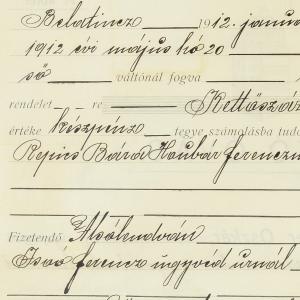 Belatincz 1912. janu
1912 évi május hó 20
ső váltónál fogva
rendelet re Kettőszáz
értéke készpénz tegye számolásba tud
Repics Bára Haubár ferencz
Fizetendő Alsólendván
ferencz ügyvéd urnál